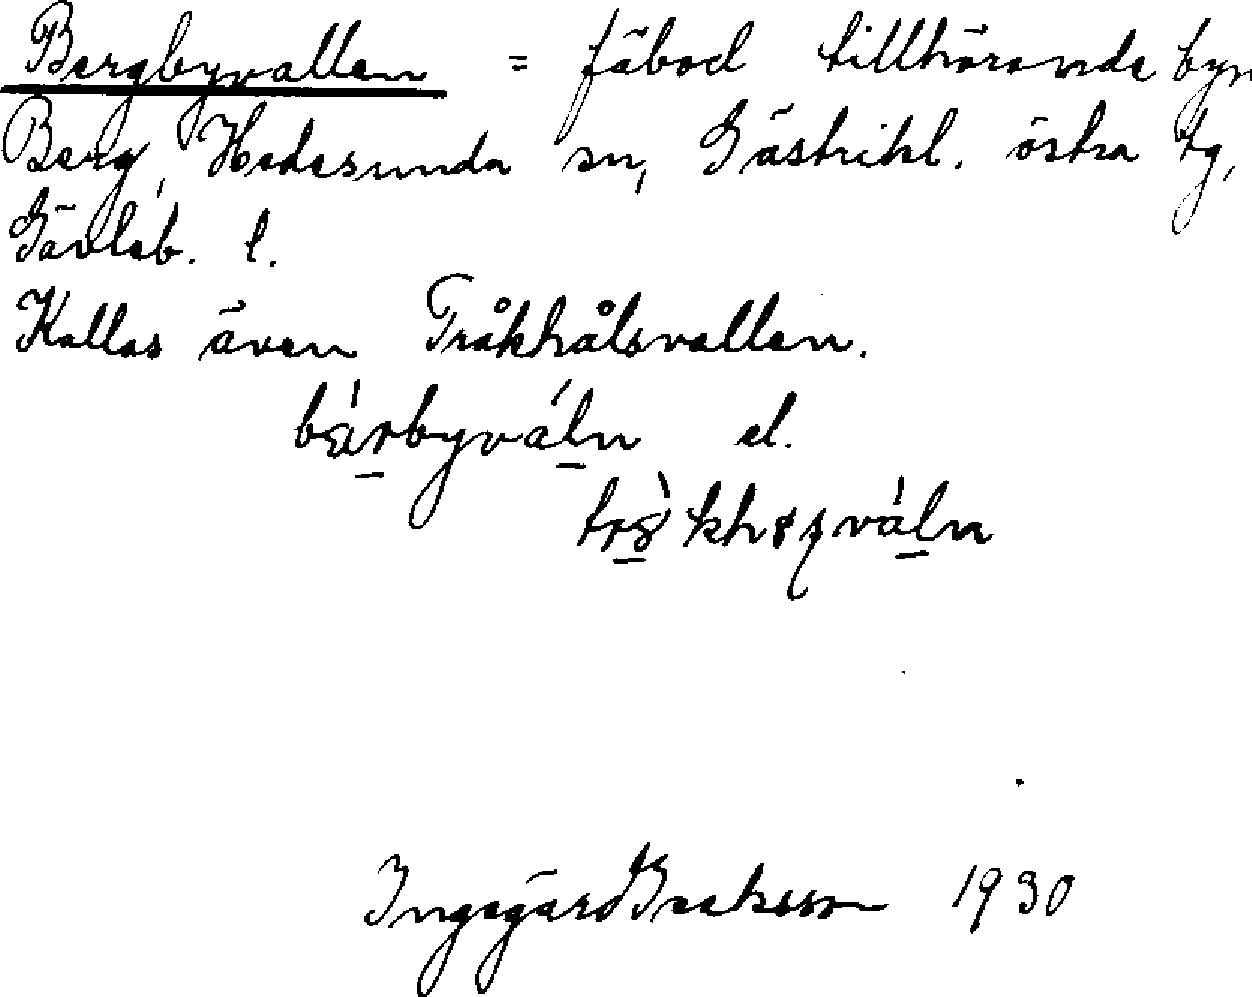 Bergbyvallen = fäbod tillhörande byn
Berg, Hedesunda sn, Gästrikl. östra tg,
Gävleb. l.
Kallas även Tråkhålsvallen.
bæ̀rbyváln el.
Ingegärd Isaksson 1930